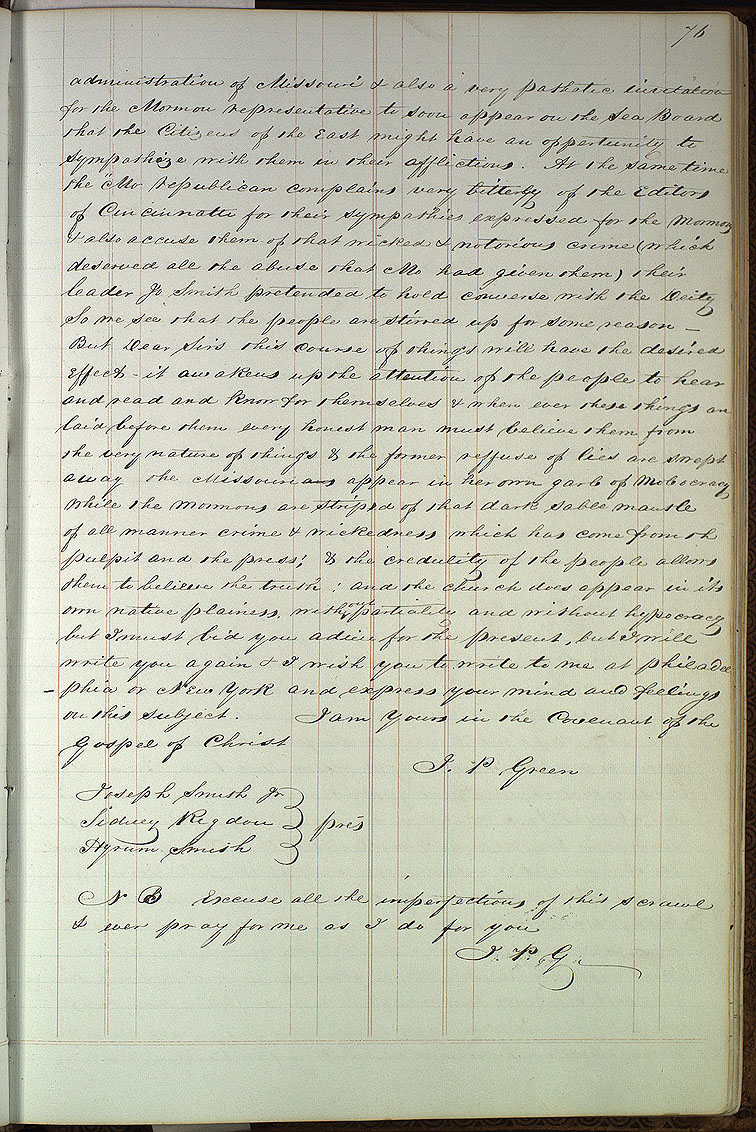 76
administration of Missouri & also a very pathetic invitation
for the Mormon representative to soon appear on the Sea Board
that the Citizens of the East might have an opportunity to
Sympathize with them in their afflictions. At the same time
the "Mo republican complains very bitterly of the Editors
of Cincinnatti for their sympathies expressed for the Mormons
& also accuse them of that wicked & notorious crime (which
deserved all the abuse that Mo had given them) their
leader Jo. Smith pretended to hold converse with the Deity
So we see that the people are stirred up for some reason —
But Dear Sirs this course of things will have the desired
Effect - it awakens up the attention of the people to hear
and read and know for themselves & when ever these things are
laid before them every honest man must believe them from
the very nature of things & the former reffuse of lies are swept
away the Missourians appear in her own garb of Mobocracy
While the Mormons are striped of that dark sable mantle
of all manner crime & wickedness which has come from th
pulpit and the press; & the credulity of the people allows
them to believe the truth; and the church does appear in its
own native plainess. with out partiality and without hypocracy
but I must bid you adieu for the present, but I will
write you again & I wish you to write to me at philadel
-phia or New York and express your mind and feelings
on this subject. I am Yours in the Covenant of the
Gospel of Christ
J. P. Green
Joseph Smith Jr.
Sidney Rigdon } pres
Hyrum Smith
N B Excuse all the imperfections of this scrawl
& ever pray for me as I do for you
J. P. G.